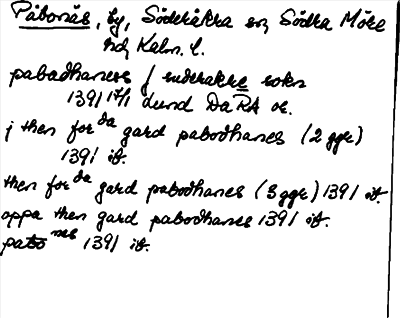 Påbonäs, by, Söderåkra sn, Södra Möre
hd, Kalm. l.
pabadhanæs j suderakre sokn
1391 17/1 Lund DaRA or.
j then for da gard pabodhanes (2 ggr)
1391 ib.
then for da gard pabodhanes (3 ggr) 1391 ib.
oppa then gard pabodhanes 1391 ib.
pabo nes 1391 ib.